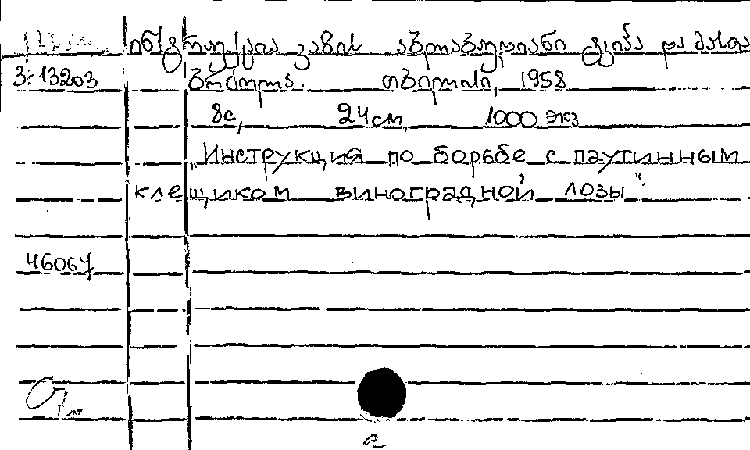 ინსტრუქცია ვაზის აბლაბუდიანი ტკიპა და მასთა
3:13203 ბრძოლა. თბილისი, 1958
8с, 24см, 1000 экз
„Инструкция по борьбе с паутинным
клещиком виноградной лозы"
46067